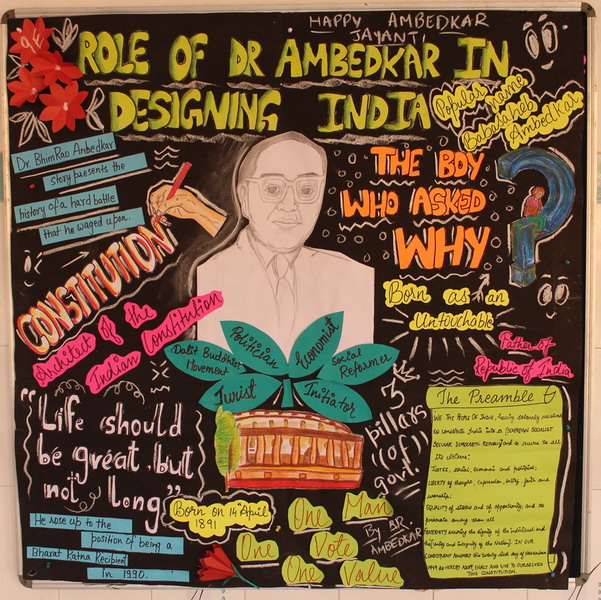 9E
HAPPY AMBEDKAR
JAYANTI
ROLE OF DR AMBEDKAR IN
DESIGNING INDIA
Popular name
Babasaheb
Ambedkar
Dr. BhimRao Ambedkar
story presents the
history of a hard battle
that he waged upon.
THE BOY
WHO ASKED
WHY
CONSTITUTION
Architect of the
Indian Constitution
Born as an
Untouchable
Father of
Republic of India
Politician
Economist
Dalit Buddhist
Movement
Social
Reformer
Jurist
Initiator
3
pillars
(of)
govt.
"Life should
be great, but
not, long"
The Preamble
WE THE PEOPLE OF INDIA, having solemnly resolved
to constitute India into a SOVEREIGN SOCIALIST
SECULAR DEMOCRATIC REPUBLIC and to secure to all
its citizens:
JUSTICE, social, economic and political;
LIBERTY of thought, expression, belief, faith and
worship;
EQUALITY of status and of opportunity; and to
promote among them all
FRATERNITY assuring the dignity of the individual and
the unity and integrity of the Nation; IN OUR
CONSTITUENT ASSEMBLY this twenty sixth day of November
1949 do HEREBY ADOPT, ENACT AND GIVE TO OURSELVES
THIS CONSTITUTION.
Born on 14 April
1891
One Man
One Vote
One Value
By BR
AMBEDKAR
He rose up to the
position of being a
Bharat Ratna Recipient
in 1990.